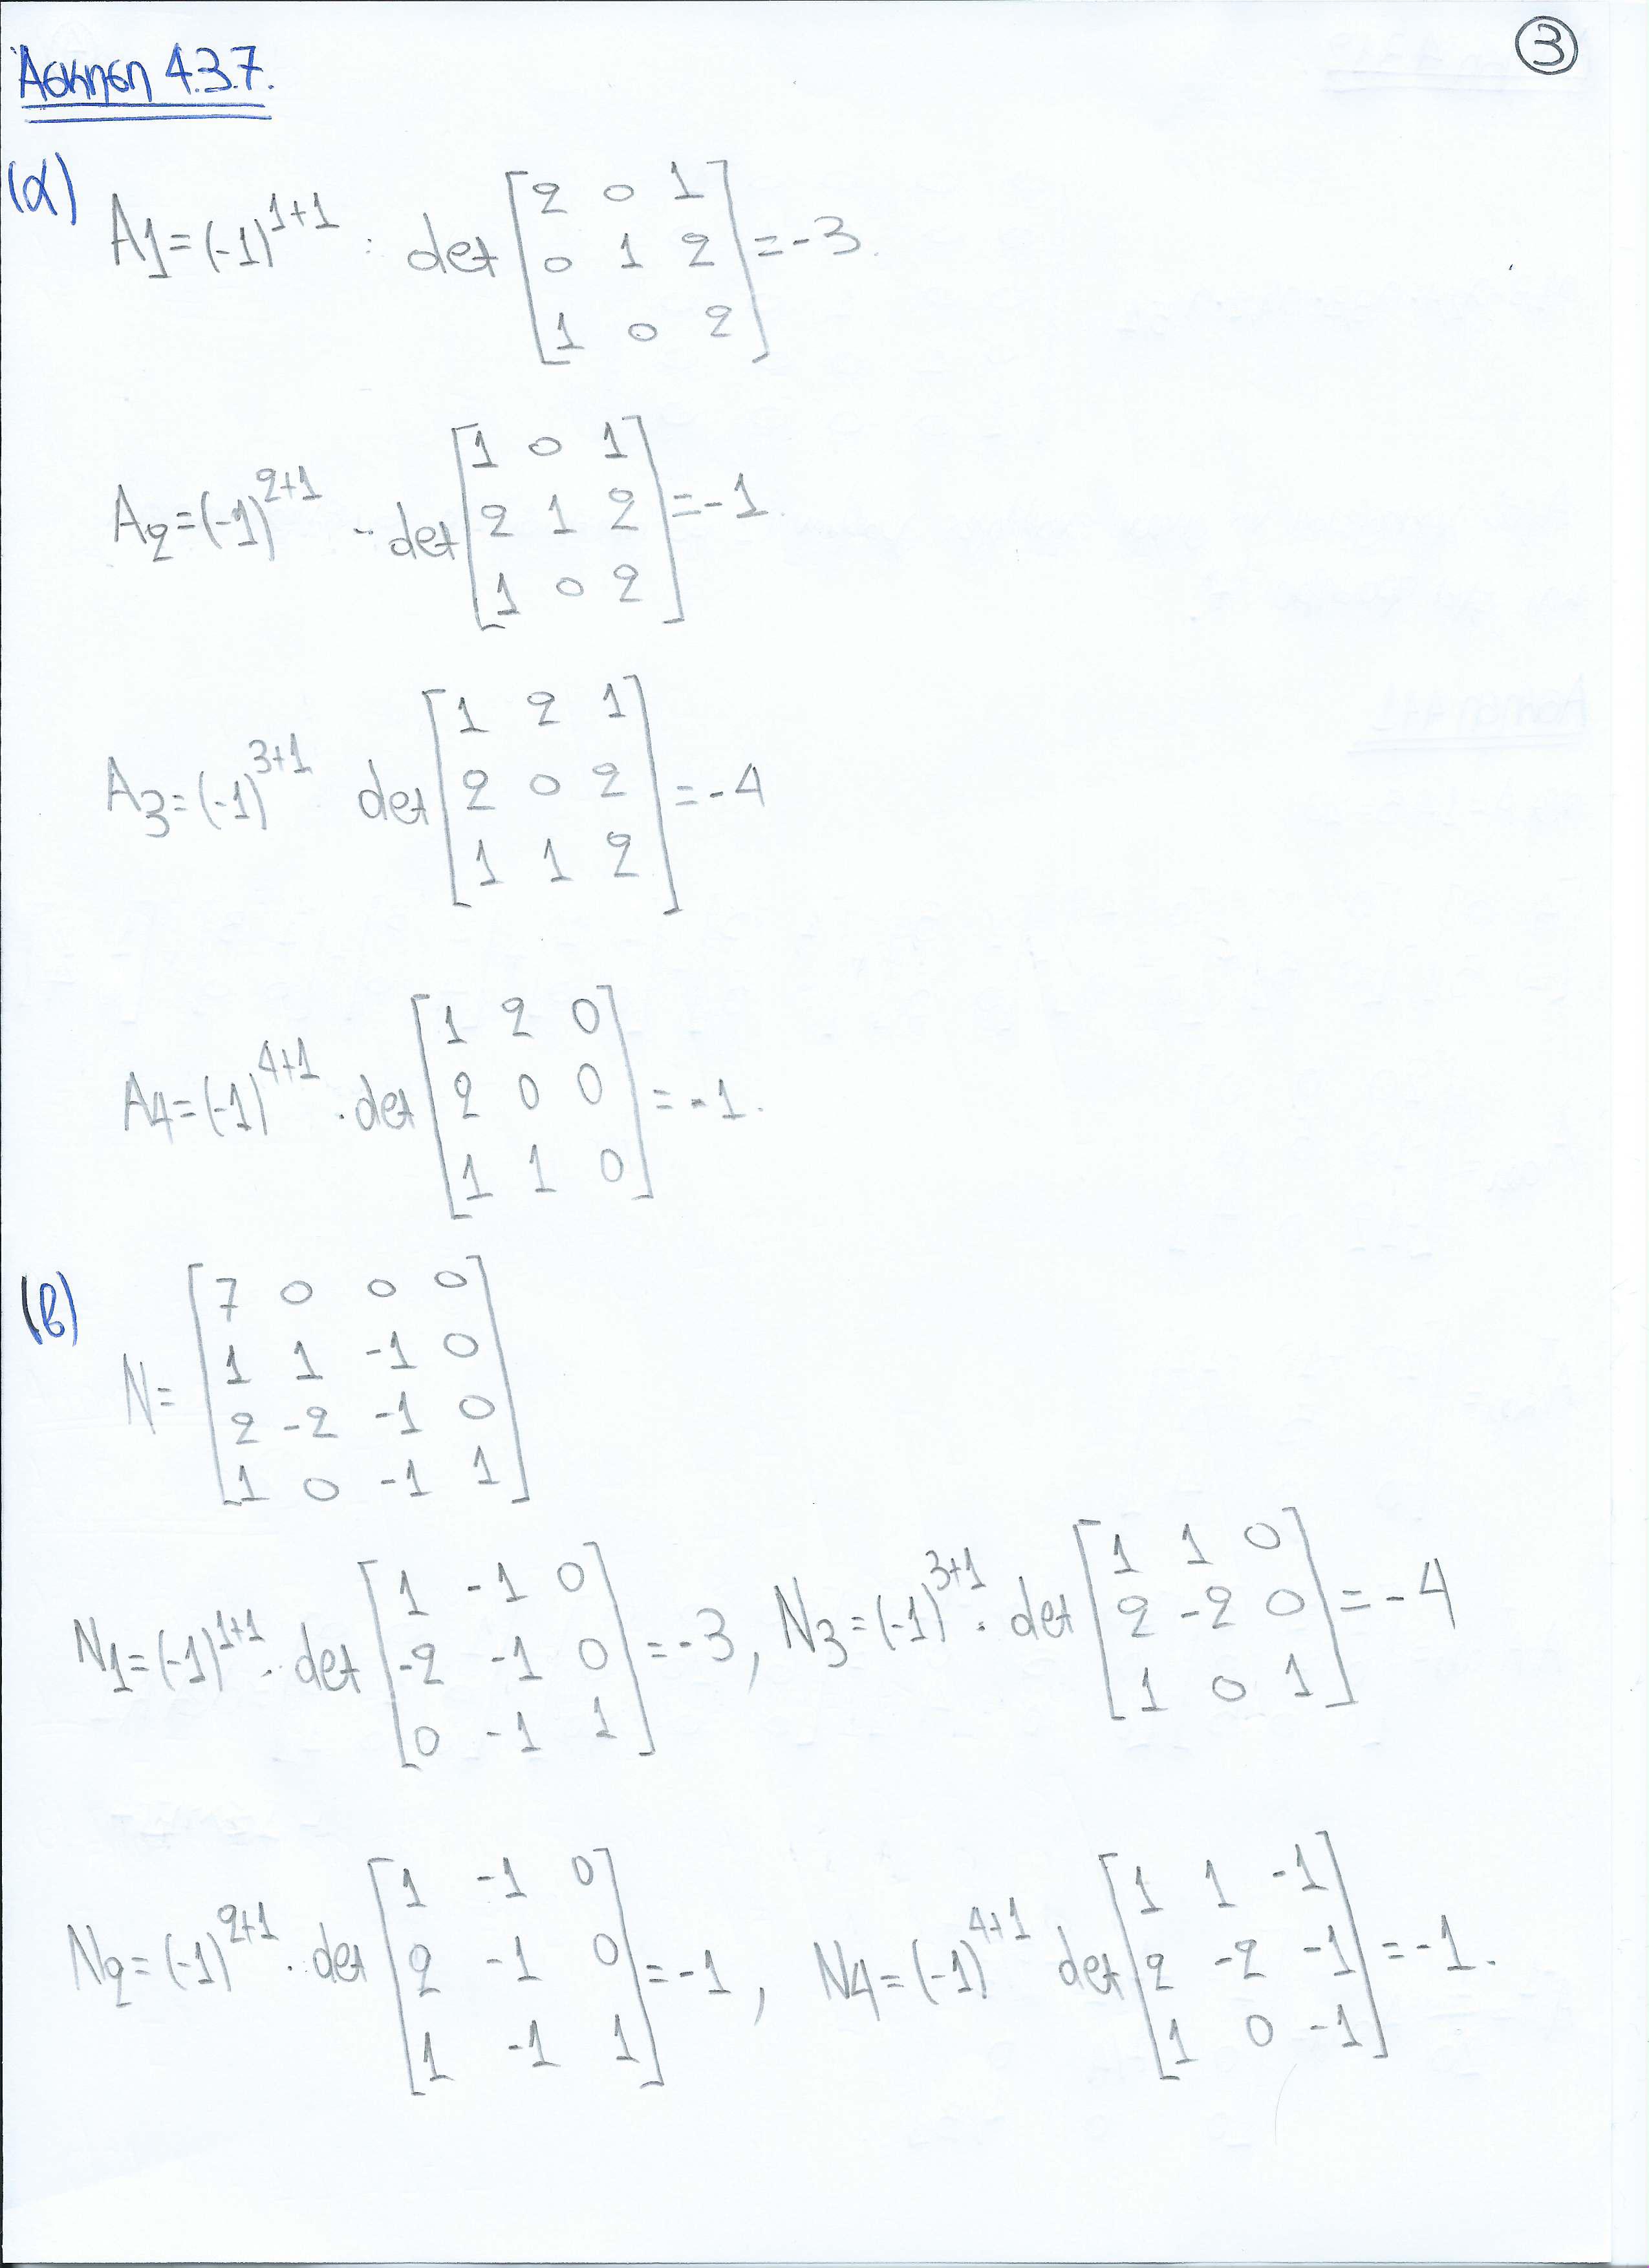 ③
Άσκηση 4.3.7.
(α) A1=(-1)^{1+1} · det [2 0 1; 0 1 2; 1 0 2] = -3.
A2=(-1)^{2+1} · det [1 0 1; 2 1 2; 1 0 2] = -1.
A3=(-1)^{3+1} det [1 2 1; 2 0 2; 1 1 2] = -4
A4=(-1)^{4+1} · det [1 2 0; 2 0 0; 1 1 0] = -1.
(β) N= [7 0 0 0; 1 1 -1 0; 2 -2 -1 0; 1 0 -1 1]
N1=(-1)^{1+1} · det [1 -1 0; -2 -1 0; 0 -1 1] = -3, N3=(-1)^{3+1} · det [1 1 0; 2 -2 0; 1 0 1] = -4
N2=(-1)^{2+1} · det [1 -1 0; 2 -1 0; 1 -1 1] = -1, N4=(-1)^{4+1} det [1 1 -1; 2 -2 -1; 1 0 -1] = -1.